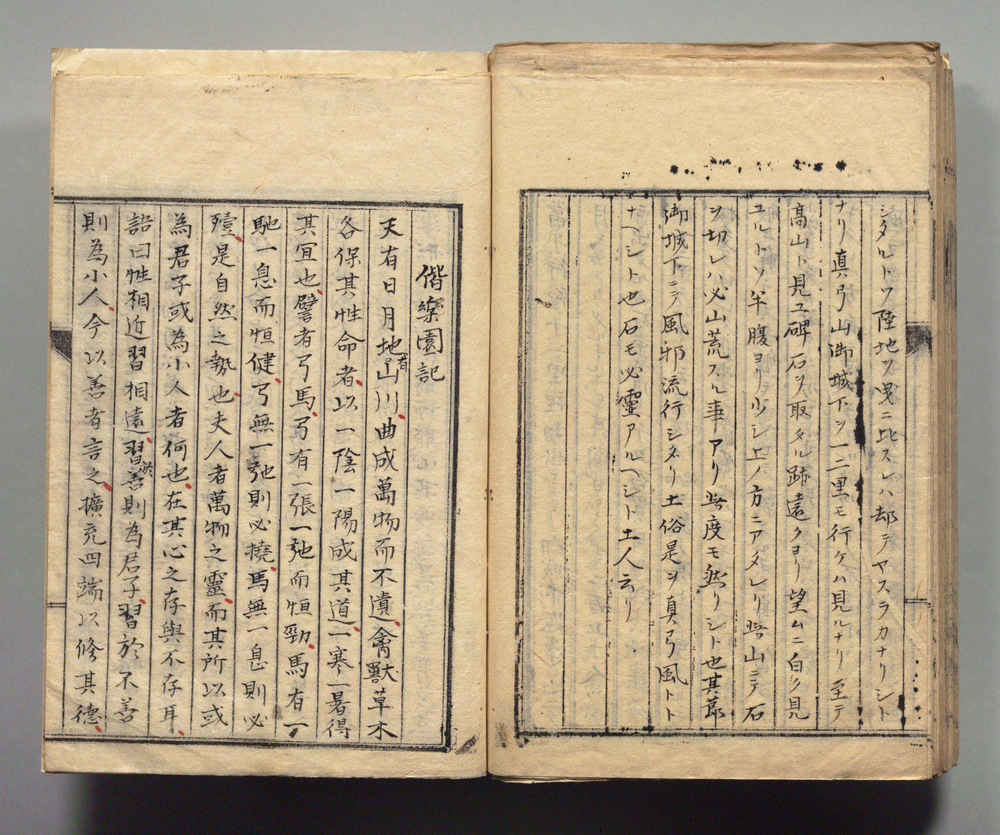 シタルトソ陸地ヲ曳ニ比スレハ却テヤスラカナリシト
ナリ真弓山御城下ヲ一二里モ行ケハ見ルナリ至テ
髙山ト見ユ碑石ヲ取タル跡遠クヨリ望ムニ白ク見
ユルトソ半腹ヨリ少シ上ノ方ニアタレリ此山ニテ石
ヲ切レハ必山荒スル事アリ此度モ然リシト也其節
御城下ニテ風邪流行シタリ土俗是ヲ真弓風ト
ナヘシト也石モ必靈アルヘシト土人云リ
偕樂園記
天有日月地有山川曲成萬物而不遺禽獸草木
各保其性命者以一陰一陽成其道一寒一暑得
其宜也譬者弓馬弓有一張一弛而恒勁馬有一
馳一息而恒健弓無一弛則必撓馬無一息則必
殪是自然之勢也夫人者萬物之靈而其所以或
為君子或為小人者何也在其心之存與不存耳
語曰性相近習相遠習於善則為君子習於不善
則為小人今以善者言之擴充四端以修其德